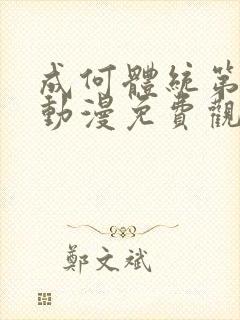 成何體統第
動漫免費觀
鄭文斌